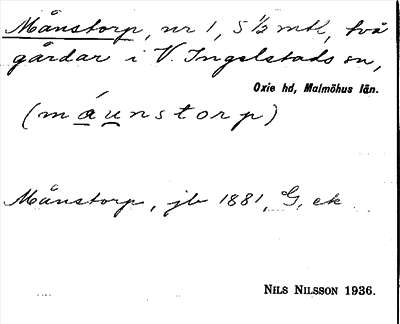 Månstorp, nr 1, 5 1/2 mtl, två
gårdar i V. Ingelstads sn,
Oxie hd, Malmöhus län.
(máunstorp)
Månstorp, jb 1881, G, ek
NILS NILSSON 1936.